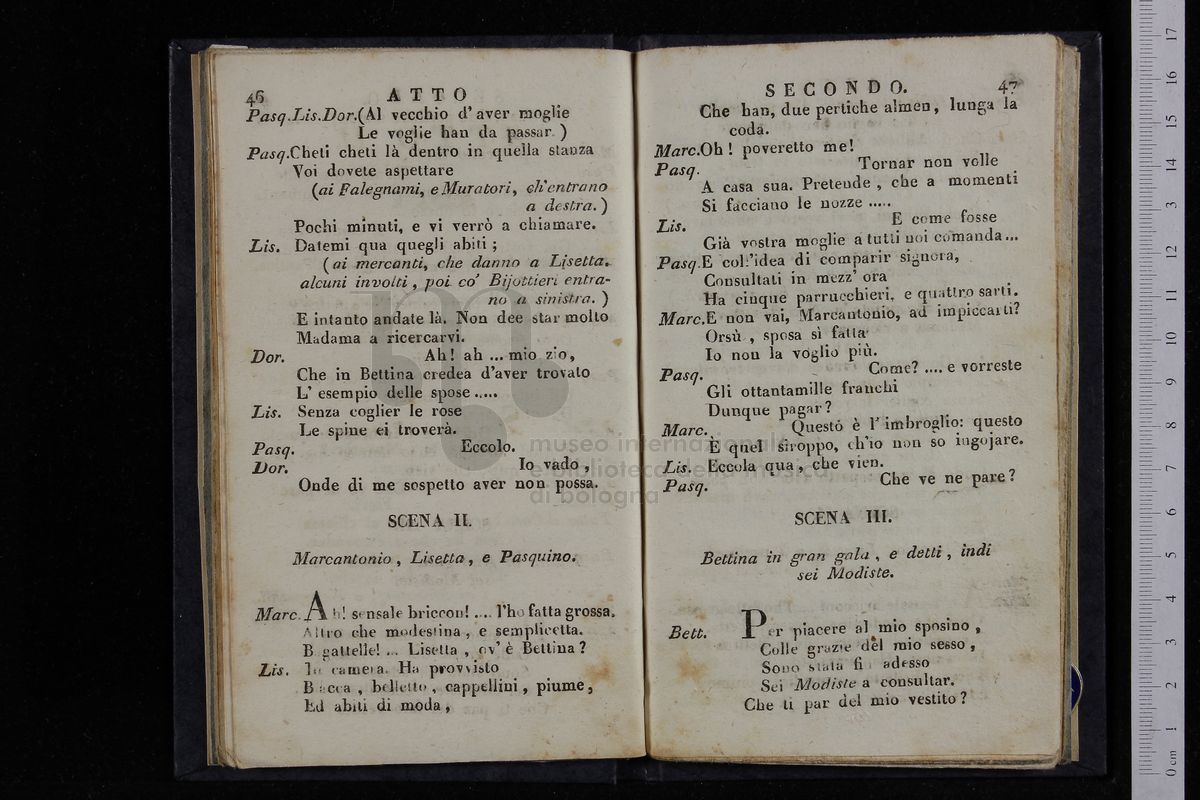 46 ATTO
Pasq.Lis.Dor.(Al vecchio d'aver moglie
Le voglie han da passar. )
Pasq.Cheti cheti là dentro in quella stanza
Voi dovete aspettare
(ai Falegnami, e Muratori, ch'entrano
a destra.)
Pochi minuti, e vi verrò a chiamare.
Lis. Datemi qua quegli abiti ;
(ai mercanti, che danno a Lisetta.
alcuni involti, poi co' Bijottieri entra-
no a sinistra. )
E intanto andate là. Non dee star molto
Madama a ricercarvi.
Dor. Ah! ah ... mio zio,
Che in Bettina credea d'aver trovato
L' esempio delle spose .....
Lis. Senza coglier le rose
Le spine ei troverà.
Pasq. Eccolo.
Dor. Io vado ,
Onde di me sospetto aver non possa.
SCENA II.
Marcantonio , Lisetta, e Pasquino.
Marc. Ah! sensale briccon! .... l'ho fatta grossa.
Altro che modestina , e semplicetta.
Bagattelle! ... Lisetta , ov' è Bettina ?
Lis. In camera. Ha provvisto
Biacca , belletto , cappellini, piume,
Ed abiti di moda ,
SECONDO. 47
Che han, due pertiche almen, lunga la
coda.
Marc.Oh ! poveretto me!
Pasq. Tornar non volle
A casa sua. Pretende , che a momenti
Si facciano le nozze .....
Lis. E come fosse
Già vostra moglie a tutti noi comanda...
Pasq.E coll'idea di comparir signora,
Consultati in mezz' ora
Ha cinque parrucchieri, e quattro sarti.
Marc.E non vai, Marcantonio, ad impiccarti?
Orsù , sposa sì fatta
Io non la voglio più.
Pasq. Come? .... e vorreste
Gli ottantamille franchi
Dunque pagar ?
Marc. Questo è l'imbroglio: questo
È quel siroppo, ch'io non so ingojare.
Lis. Eccola qua, che vien.
Pasq. Che ve ne pare ?
SCENA III.
Bettina in gran gala , e detti , indi
sei Modiste.
Bett. Per piacere al mio sposino ,
Colle grazie del mio sesso ,
Sono stata fin adesso
Sei Modiste a consultar.
Che ti par del mio vestito ?
museo internazionale
e biblioteca della musica
di bologna
0 cm 1 2 3 4 5 6 7 8 9 10 11 12 13 14 15 16 17